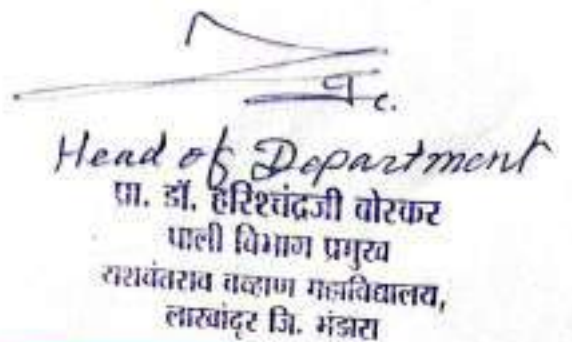 Head of Department
प्रा. डॉ. हरिश्चंद्रजी बोरकर
पाली विभाग प्रमुख
यशवंतराव चव्हाण महाविद्यालय,
लाखांदूर जि. भंडारा